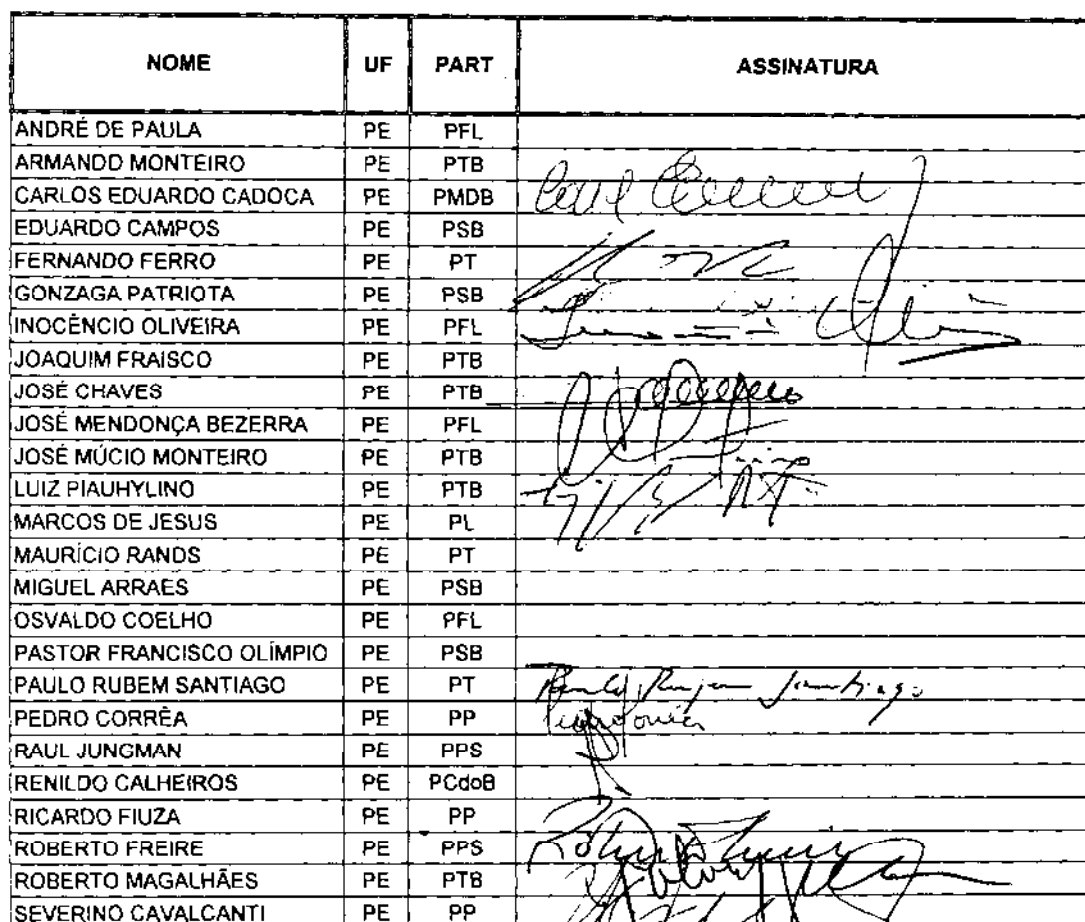 NOME UF PART ASSINATURA
ANDRÉ DE PAULA PE PFL
ARMANDO MONTEIRO PE PTB
CARLOS EDUARDO CADOCA PE PMDB
EDUARDO CAMPOS PE PSB
FERNANDO FERRO PE PT
GONZAGA PATRIOTA PE PSB
INOCÊNCIO OLIVEIRA PE PFL
JOAQUIM FRAISCO PE PTB
JOSÉ CHAVES PE PTB
JOSÉ MENDONÇA BEZERRA PE PFL
JOSÉ MÚCIO MONTEIRO PE PTB
LUIZ PIAUHYLINO PE PTB
MARCOS DE JESUS PE PL
MAURÍCIO RANDS PE PT
MIGUEL ARRAES PE PSB
OSVALDO COELHO PE PFL
PASTOR FRANCISCO OLÍMPIO PE PSB
PAULO RUBEM SANTIAGO PE PT
PEDRO CORRÊA PE PP
RAUL JUNGMAN PE PPS
RENILDO CALHEIROS PE PCdoB
RICARDO FIUZA PE PP
ROBERTO FREIRE PE PPS
ROBERTO MAGALHÃES PE PTB
SEVERINO CAVALCANTI PE PP